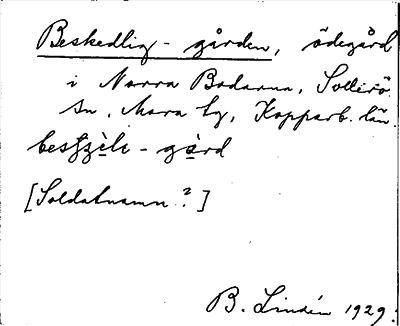 Beskedlig-gården, ödegård
i Norra Bodarna, Sollerö
sn, Mora tg, Kopparb. län
- gård
[Soldatnamn?]
B. Lindén 1929.